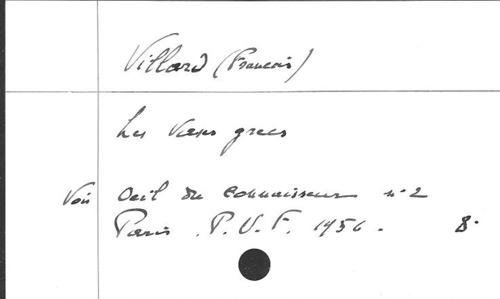 Villard (François)
Les Vases grecs
Voir Oeil du Connaisseur n°2
Paris. P.U.F. 1956. 8.